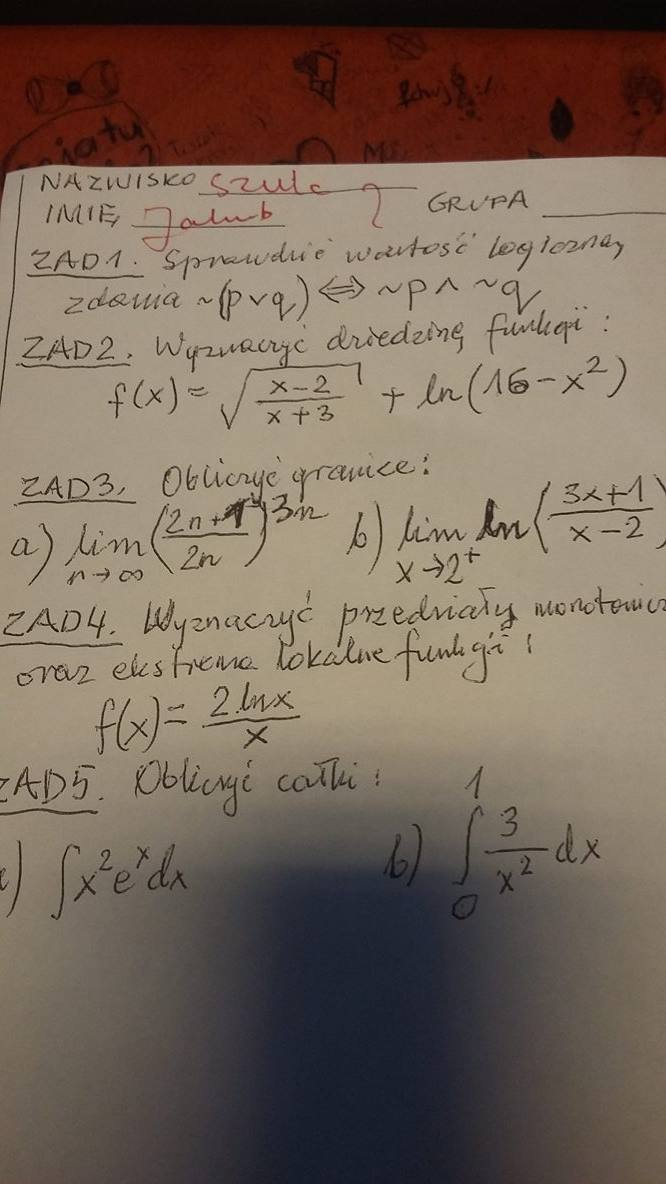 NAZWISKO Szulc
IMIĘ Jakub GRUPA
ZAD1. Sprawdzić wartość logiczną
zdania ~(p∨q) ⇔ ~p ∧ ~q
ZAD2. Wyznaczyć dziedzinę funkcji:
f(x) = √((x-2)/(x+3)) + ln(16-x²)
ZAD3. Obliczyć granice:
a) lim n→∞ ((2n+1)/2n)^3n b) lim x→2⁺ ln((3x+1)/(x-2))
ZAD4. Wyznaczyć przedziały monotonicz
oraz ekstrema lokalne funkcji:
f(x) = 2lnx/x
ZAD5. Obliczyć całki:
) ∫x²eˣdx b) ∫₀¹ 3/x² dx